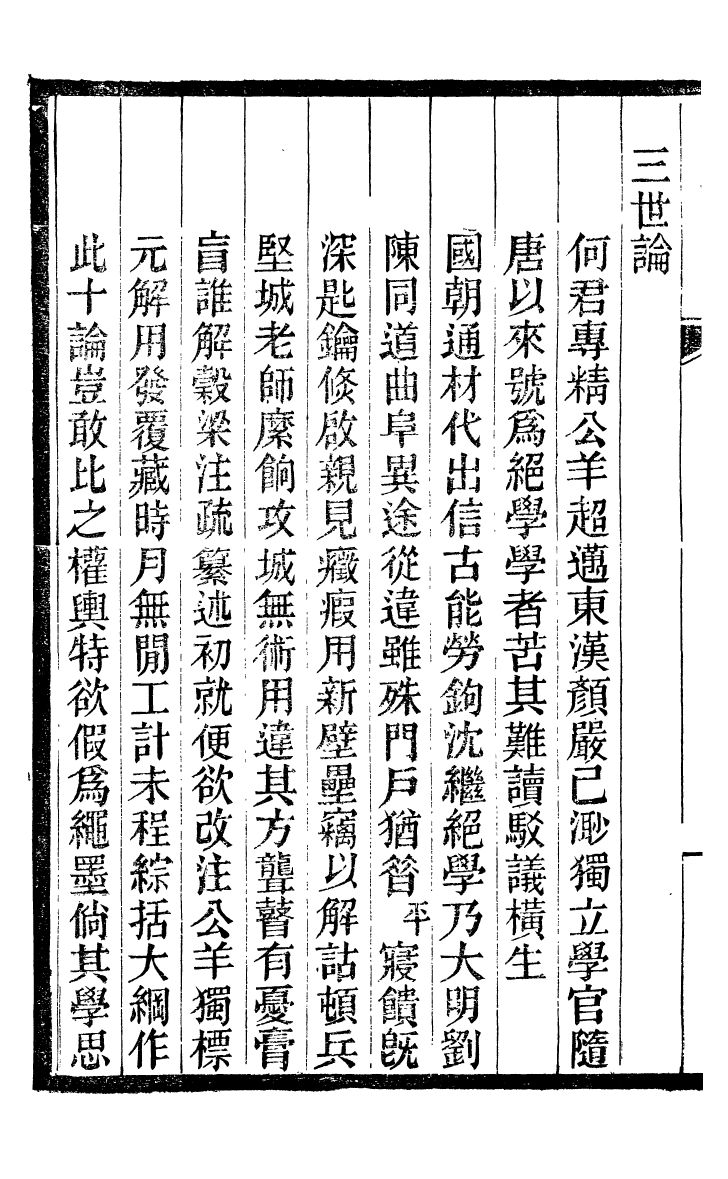 三世論
何君專精公羊超邁東漢顏嚴已渺獨立學官隨
唐以來號爲絕學學者苦其難讀駁議橫生
國朝通材代出信古能勞鉤沈繼絕學乃大明劉
陳同道曲阜異途從違雖殊門戶猶昝平寢饋旣
深匙鑰倏啟親見癥瘕用新壁壘竊以解詁頓兵
堅城老師糜餉攻城無術用違其方聾瞽有憂膏
盲誰解穀梁注疏纂述初就便欲改注公羊獨標
元解用發覆藏時月無閒工計未程綜括大綱作
此十論豈敢比之權輿特欲假爲繩墨倘其學思